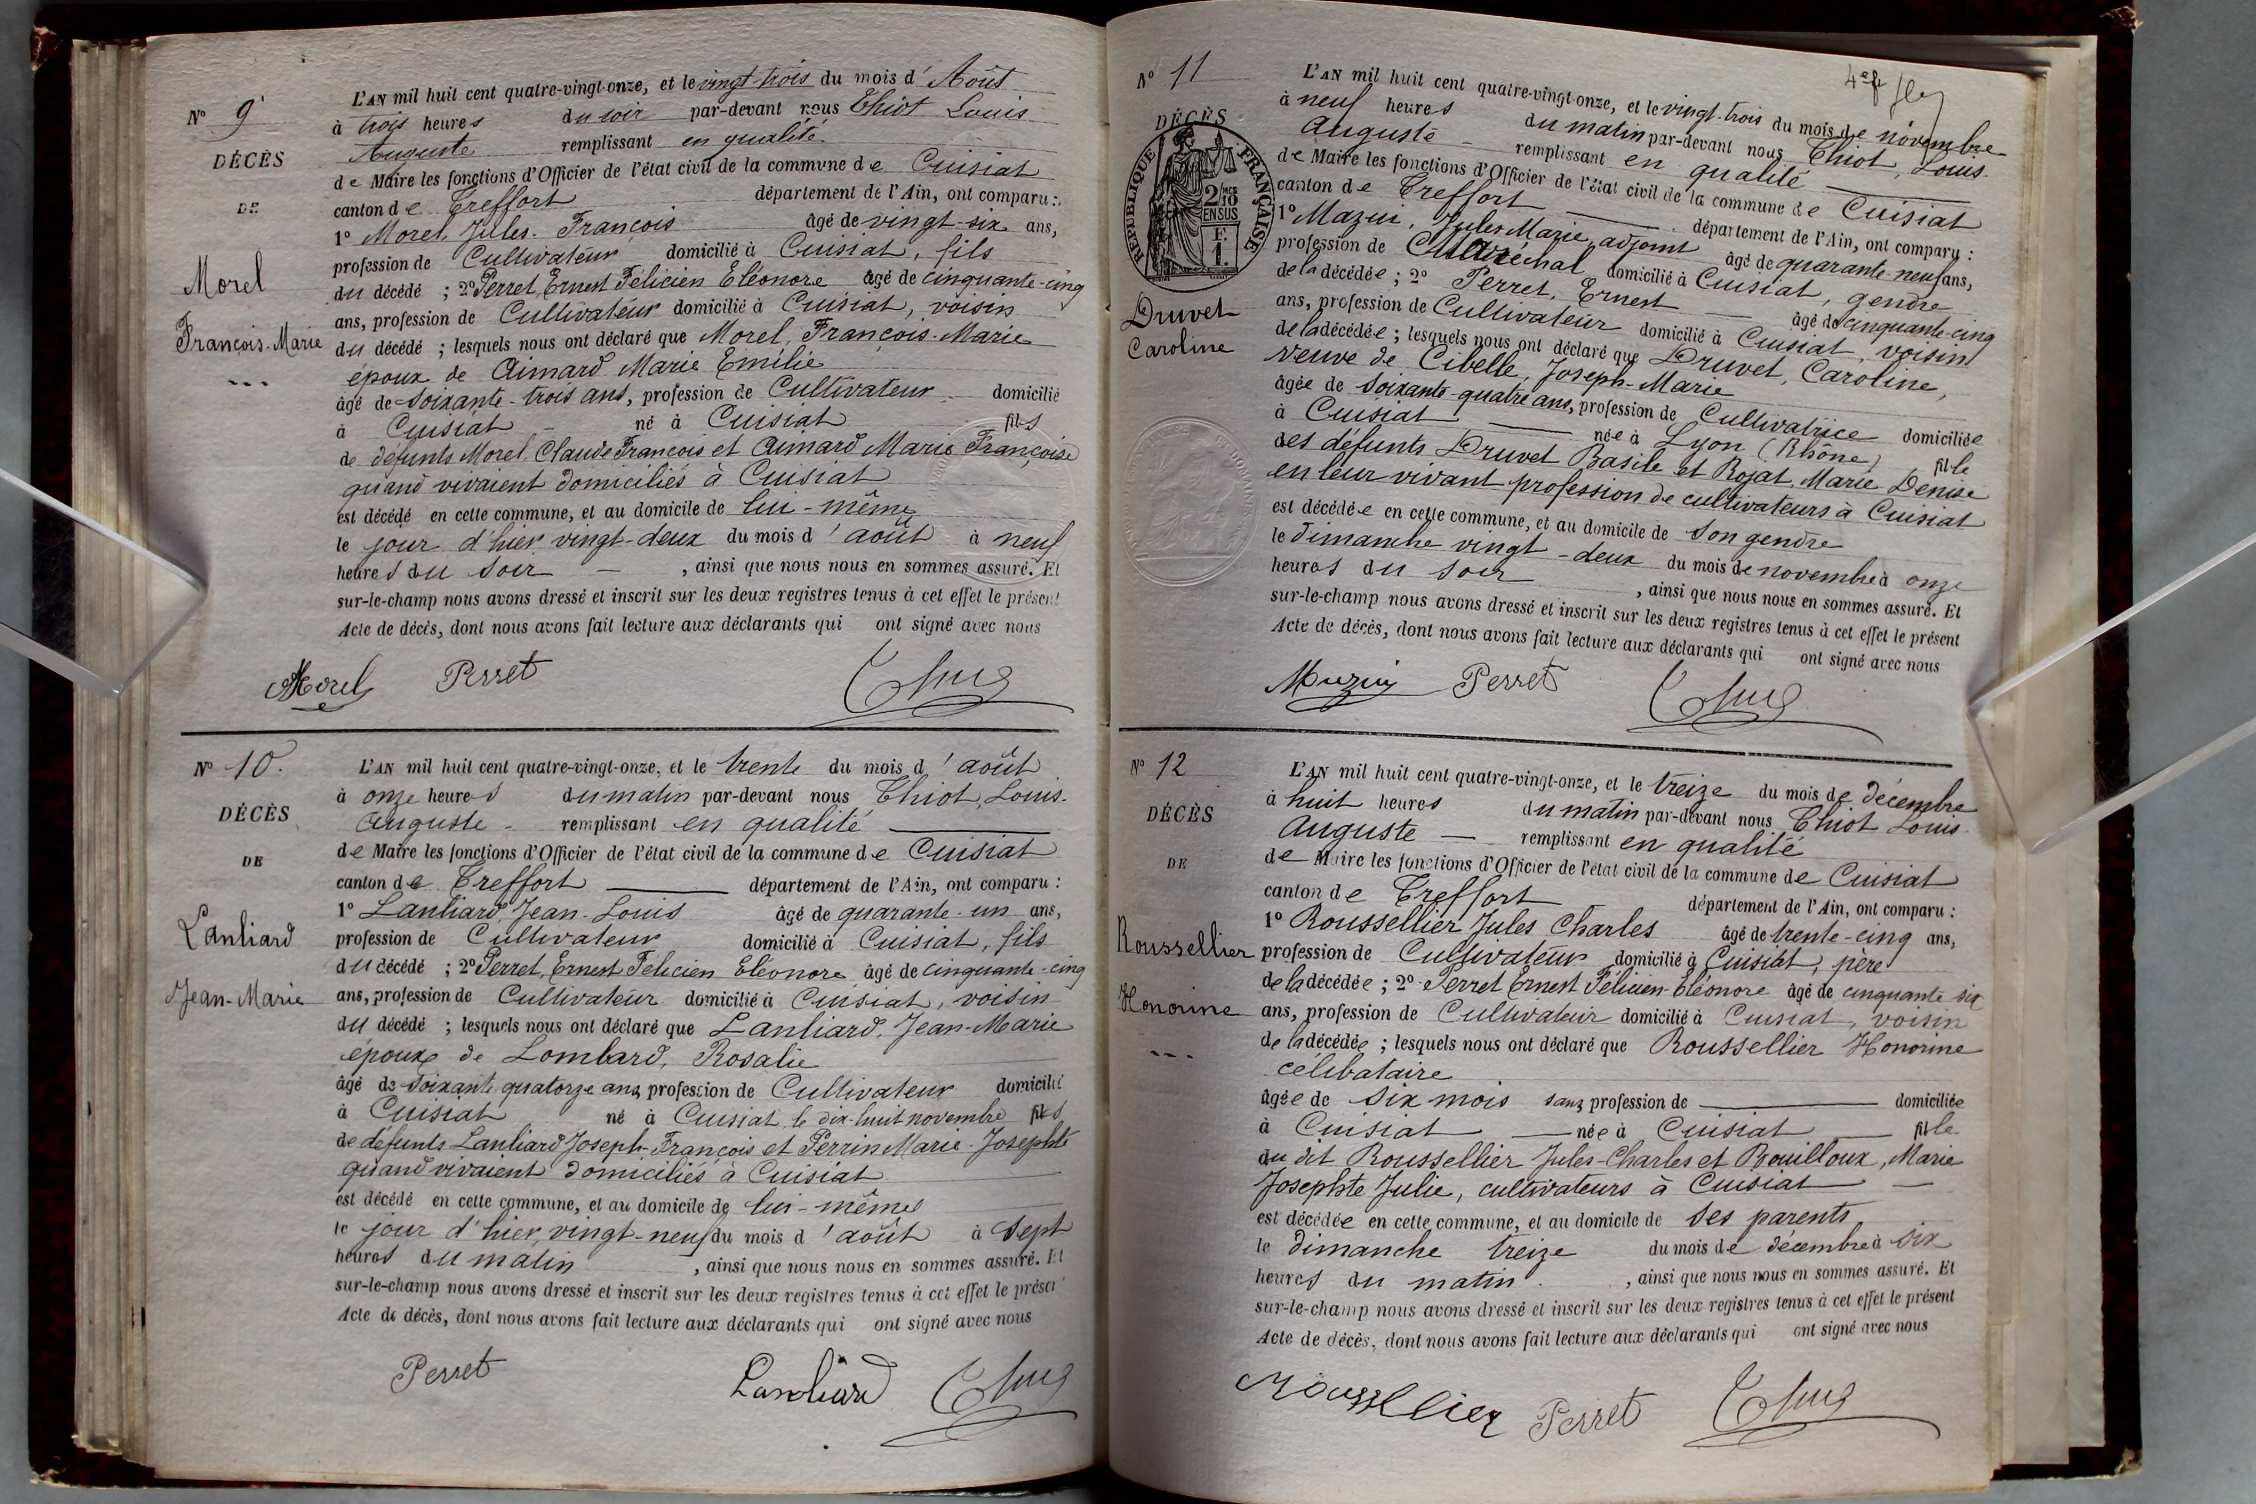 N° 9
DÉCÈS
DE
Morel
François-Marie
L'AN mil huit cent quatre-vingt-onze, et le vingt-trois du mois d'Août
à trois heures du soir par-devant nous Thiot Louis
Auguste remplissant en qualité
de Maire les fonctions d'Officier de l'état civil de la commune de Cuisiat
canton de Treffort département de l'Ain, ont comparu :
1° Morel, Jules-François âgé de vingt-six ans,
profession de Cultivateur domicilié à Cuisiat, fils
du décédé ; 2° Perret, Ernest Félicien Eléonore âgé de cinquante-cinq
ans, profession de Cultivateur domicilié à Cuisiat, voisin
du décédé ; lesquels nous ont déclaré que Morel, François-Marie
époux de Aimard Marie Emélie
âgé de soixante-trois ans, profession de Cultivateur domicilié
à Cuisiat né à Cuisiat fils
de défunts Morel, Claude François et Aimard Marie Françoise
quand vivaient domiciliés à Cuisiat
est décédé en cette commune, et au domicile de lui-même
le jour d'hier, vingt-deux du mois d'août à neuf
heures du soir, ainsi que nous nous en sommes assuré. Et
sur-le-champ nous avons dressé et inscrit sur les deux registres tenus à cet effet le présent
Acte de décès, dont nous avons fait lecture aux déclarants qui ont signé avec nous
Morel Perret
N° 10.
DÉCÈS
DE
Lanliard
Jean-Marie
L'AN mil huit cent quatre-vingt-onze, et le trente du mois d'août
à onze heures du matin par-devant nous Thiot, Louis-
Auguste - remplissant en qualité
de Maire les fonctions d'Officier de l'état civil de la commune de Cuisiat
canton de Treffort département de l'Ain, ont comparu :
1° Lanliard, Jean-Louis âgé de quarante-un ans,
profession de Cultivateur domicilié à Cuisiat, fils
du décédé ; 2° Perret, Ernest Félicien Eléonore âgé de cinquante-cinq
ans, profession de Cultivateur domicilié à Cuisiat, voisin
du décédé ; lesquels nous ont déclaré que Lanliard, Jean-Marie
époux de Lombard, Rosalie
âgé de soixante quatorze ans, profession de Cultivateur domicilié
à Cuisiat né à Cuisiat le dix-huit novembre fils
de défunts Lanliard Joseph-François et Perrin Marie-Josephte
quand vivaient domiciliés à Cuisiat
est décédé en cette commune, et au domicile de lui-même
le jour d'hier, vingt-neuf du mois d'août à sept
heures du matin, ainsi que nous nous en sommes assuré. Et
sur-le-champ nous avons dressé et inscrit sur les deux registres tenus à cet effet le présent
Acte de décès, dont nous avons fait lecture aux déclarants qui ont signé avec nous
Perret Lanliard
N° 11
DÉCÈS
RÉPUBLIQUE FRANÇAISE
2/10 EN SUS
Druvet
Caroline
L'AN mil huit cent quatre-vingt-onze, et le vingt-trois du mois de novembre
à neuf heures du matin par-devant nous Thiot, Louis-
Auguste - remplissant en qualité
de Maire les fonctions d'Officier de l'état civil de la commune de Cuisiat
canton de Treffort département de l'Ain, ont comparu :
1° Mazui, Jules Marie, adjoint âgé de quarante-neuf ans,
profession de Maréchal domicilié à Cuisiat, gendre
de la décédée ; 2° Perret, Ernest âgé de cinquante-cinq
ans, profession de Cultivateur domicilié à Cuisiat, voisin
de la décédée ; lesquels nous ont déclaré que Druvet, Caroline,
veuve de Cibelle, Joseph-Marie
âgée de soixante-quatre ans, profession de Cultivatrice domiciliée
à Cuisiat née à Lyon (Rhône) fille
des défunts Druvet Basile et Rojat, Marie Denise
en leur vivant profession de cultivateurs à Cuisiat
est décédée en cette commune, et au domicile de son gendre
le dimanche vingt-deux du mois de novembre à onze
heures du soir, ainsi que nous nous en sommes assuré. Et
sur-le-champ nous avons dressé et inscrit sur les deux registres tenus à cet effet le présent
Acte de décès, dont nous avons fait lecture aux déclarants qui ont signé avec nous
Perret
N° 12
DÉCÈS
DE
Roussellier
Honorine
L'AN mil huit cent quatre-vingt-onze, et le treize du mois de décembre
à huit heures du matin par-devant nous Thiot Louis-
Auguste - remplissant en qualité
de Maire les fonctions d'Officier de l'état civil de la commune de Cuisiat
canton de Treffort département de l'Ain, ont comparu :
1° Roussellier Jules Charles âgé de trente-cinq ans,
profession de Cultivateur domicilié à Cuisiat, père
de la décédée ; 2° Perret Ernest Félicien Eléonore âgé de cinquante six
ans, profession de Cultivateur domicilié à Cuisiat, voisin
de la décédée ; lesquels nous ont déclaré que Roussellier Honorine
célibataire
âgée de six mois sans profession de domiciliée
à Cuisiat née à Cuisiat fille
du dit Roussellier Jules-Charles et Bouilloux, Marie
Josephte Julie, cultivateurs à Cuisiat
est décédée en cette commune, et au domicile de ses parents
le dimanche treize du mois de décembre à six
heures du matin, ainsi que nous nous en sommes assuré. Et
sur-le-champ nous avons dressé et inscrit sur les deux registres tenus à cet effet le présent
Acte de décès, dont nous avons fait lecture aux déclarants qui ont signé avec nous
Roussellier Perret